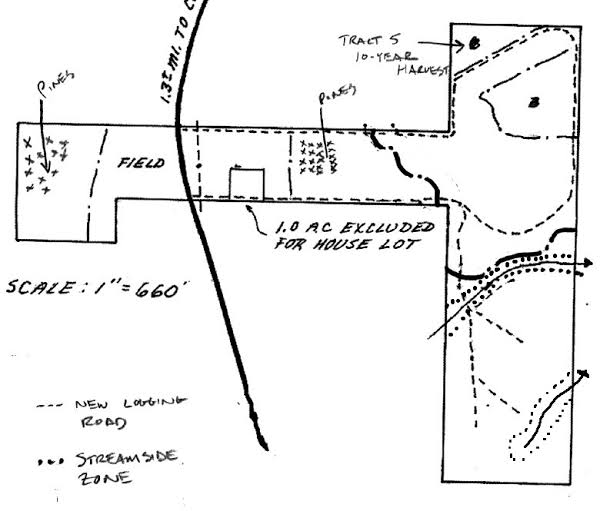 1.3± MI. TO
TRACT 5
10-YEAR
HARVEST
B
B
PINES
PINES
FIELD
1.0 AC EXCLUDED
FOR HOUSE LOT
SCALE: 1"=660'
--- NEW LOGGING
ROAD
••• STREAMSIDE
ZONE